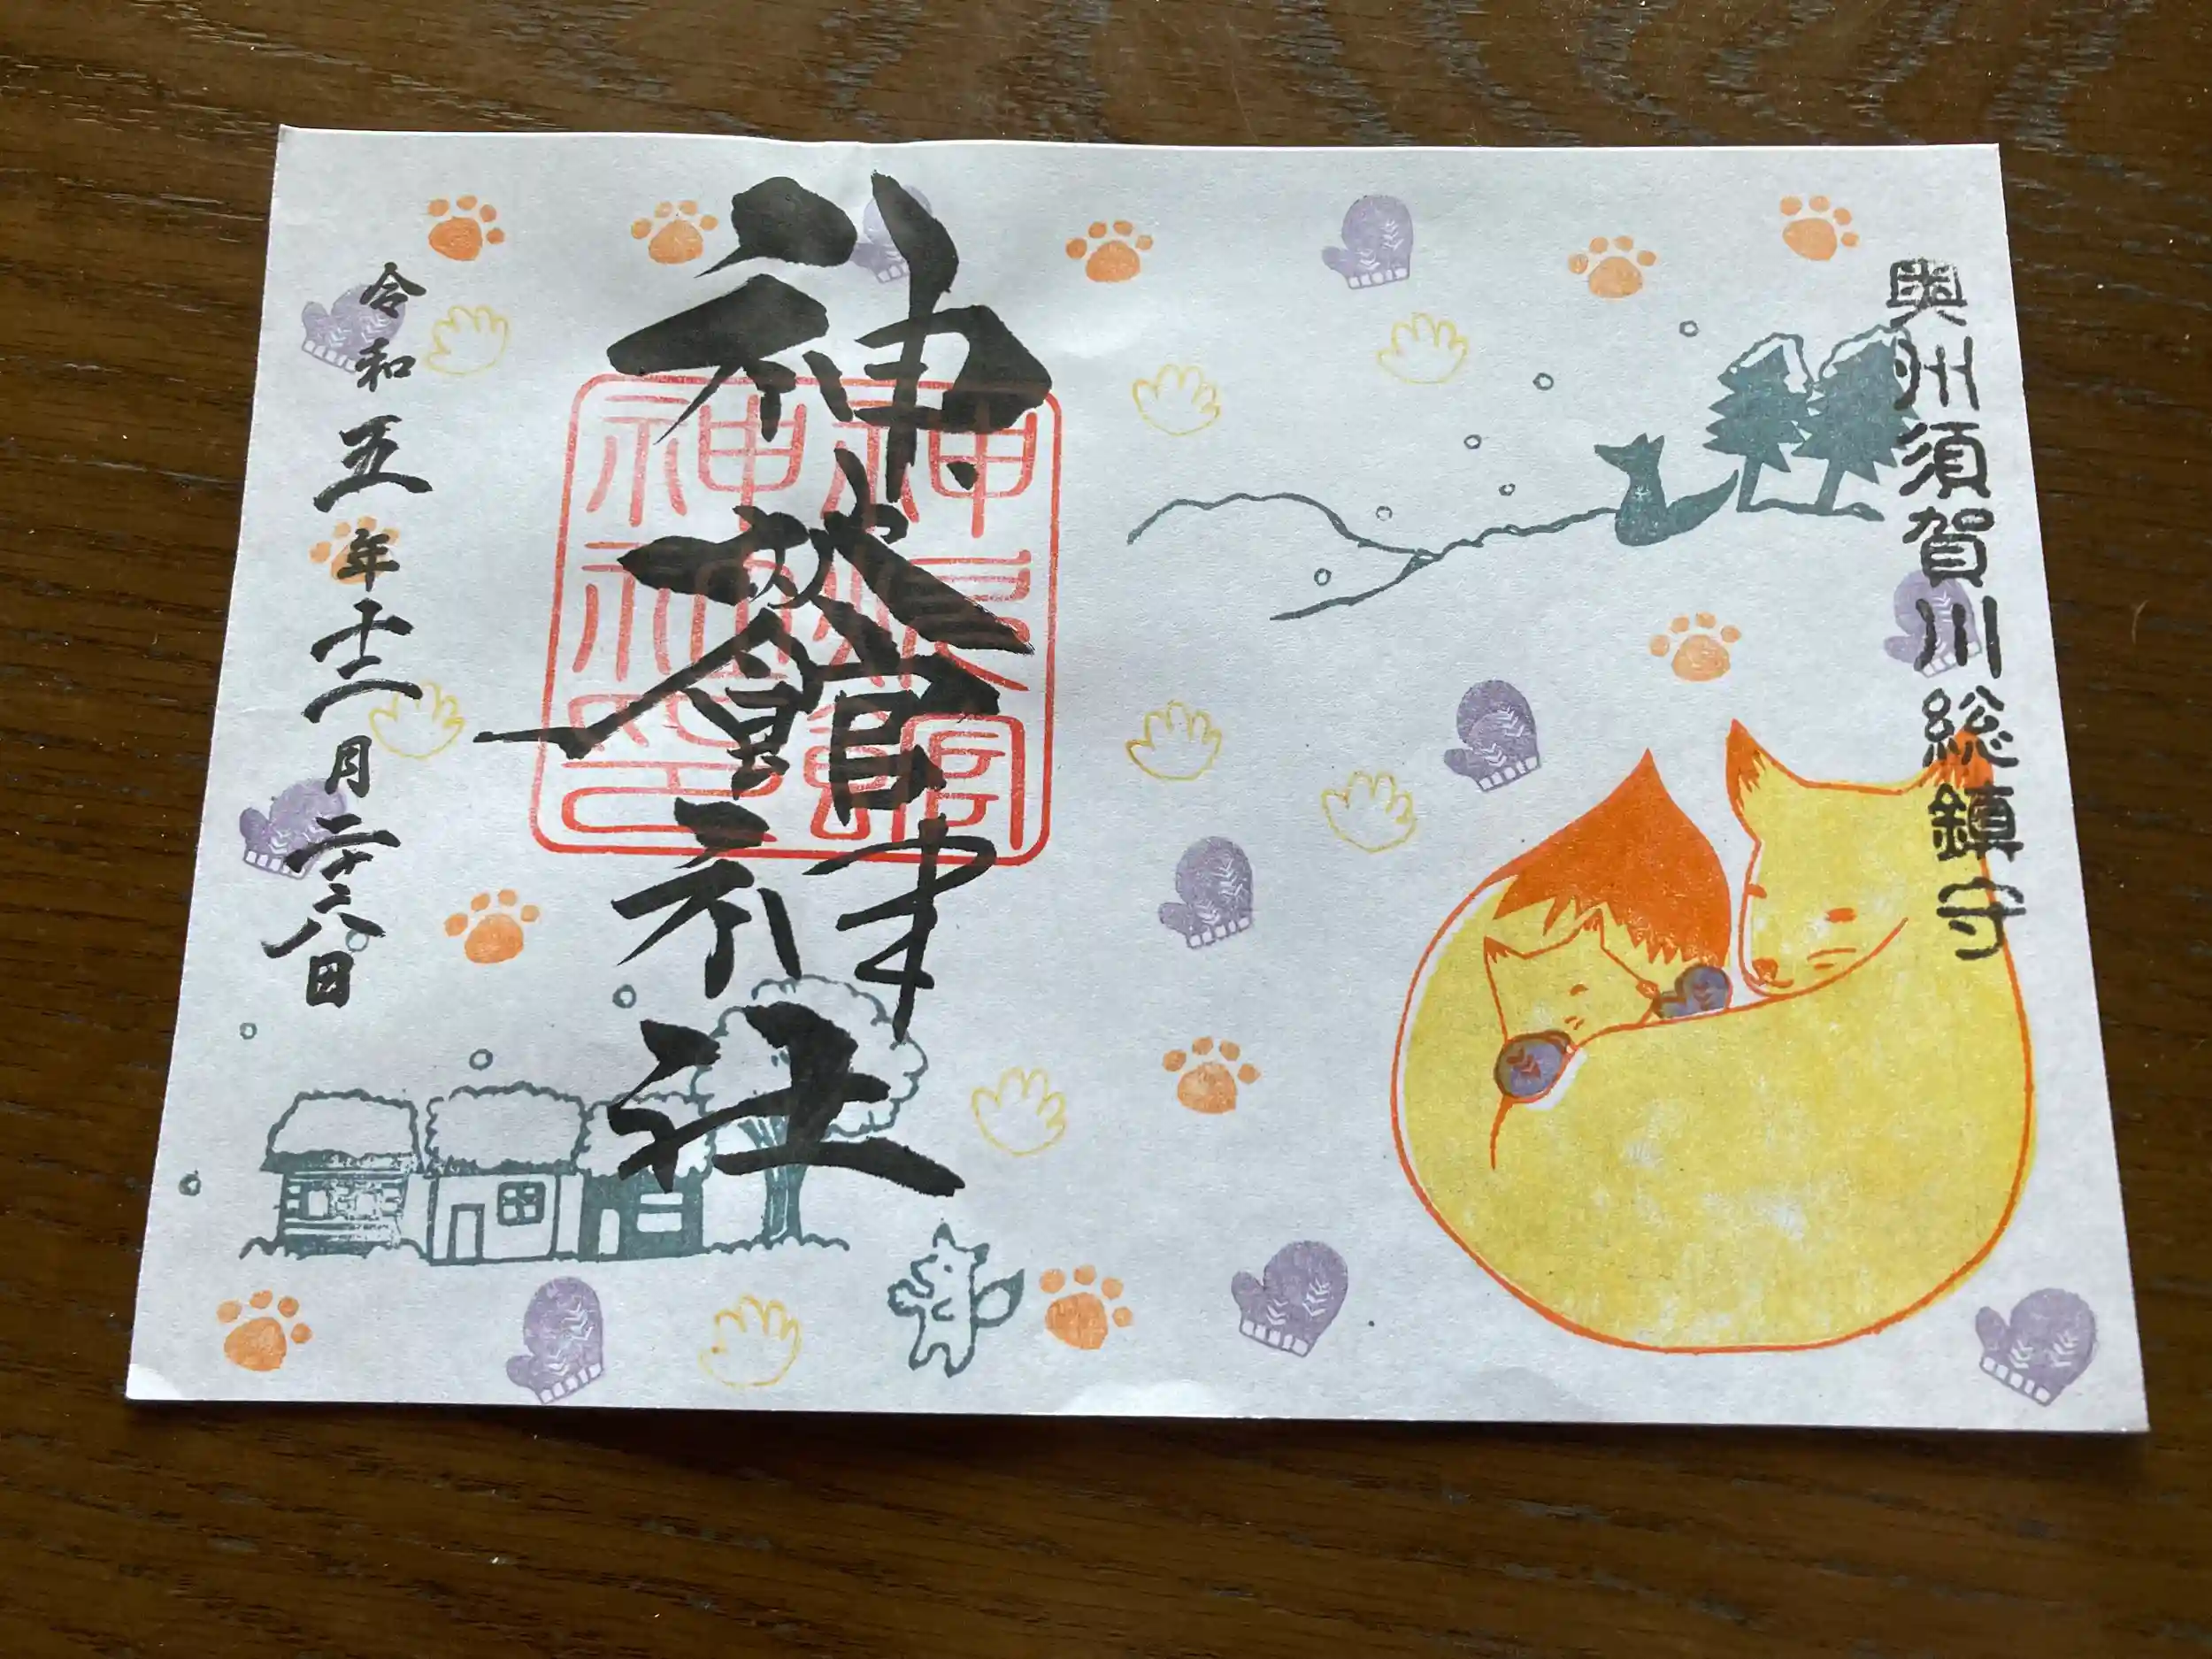 奥州須賀川総鎮守
神炊館神社
神炊館
神社印
令和五年十二月二十六日